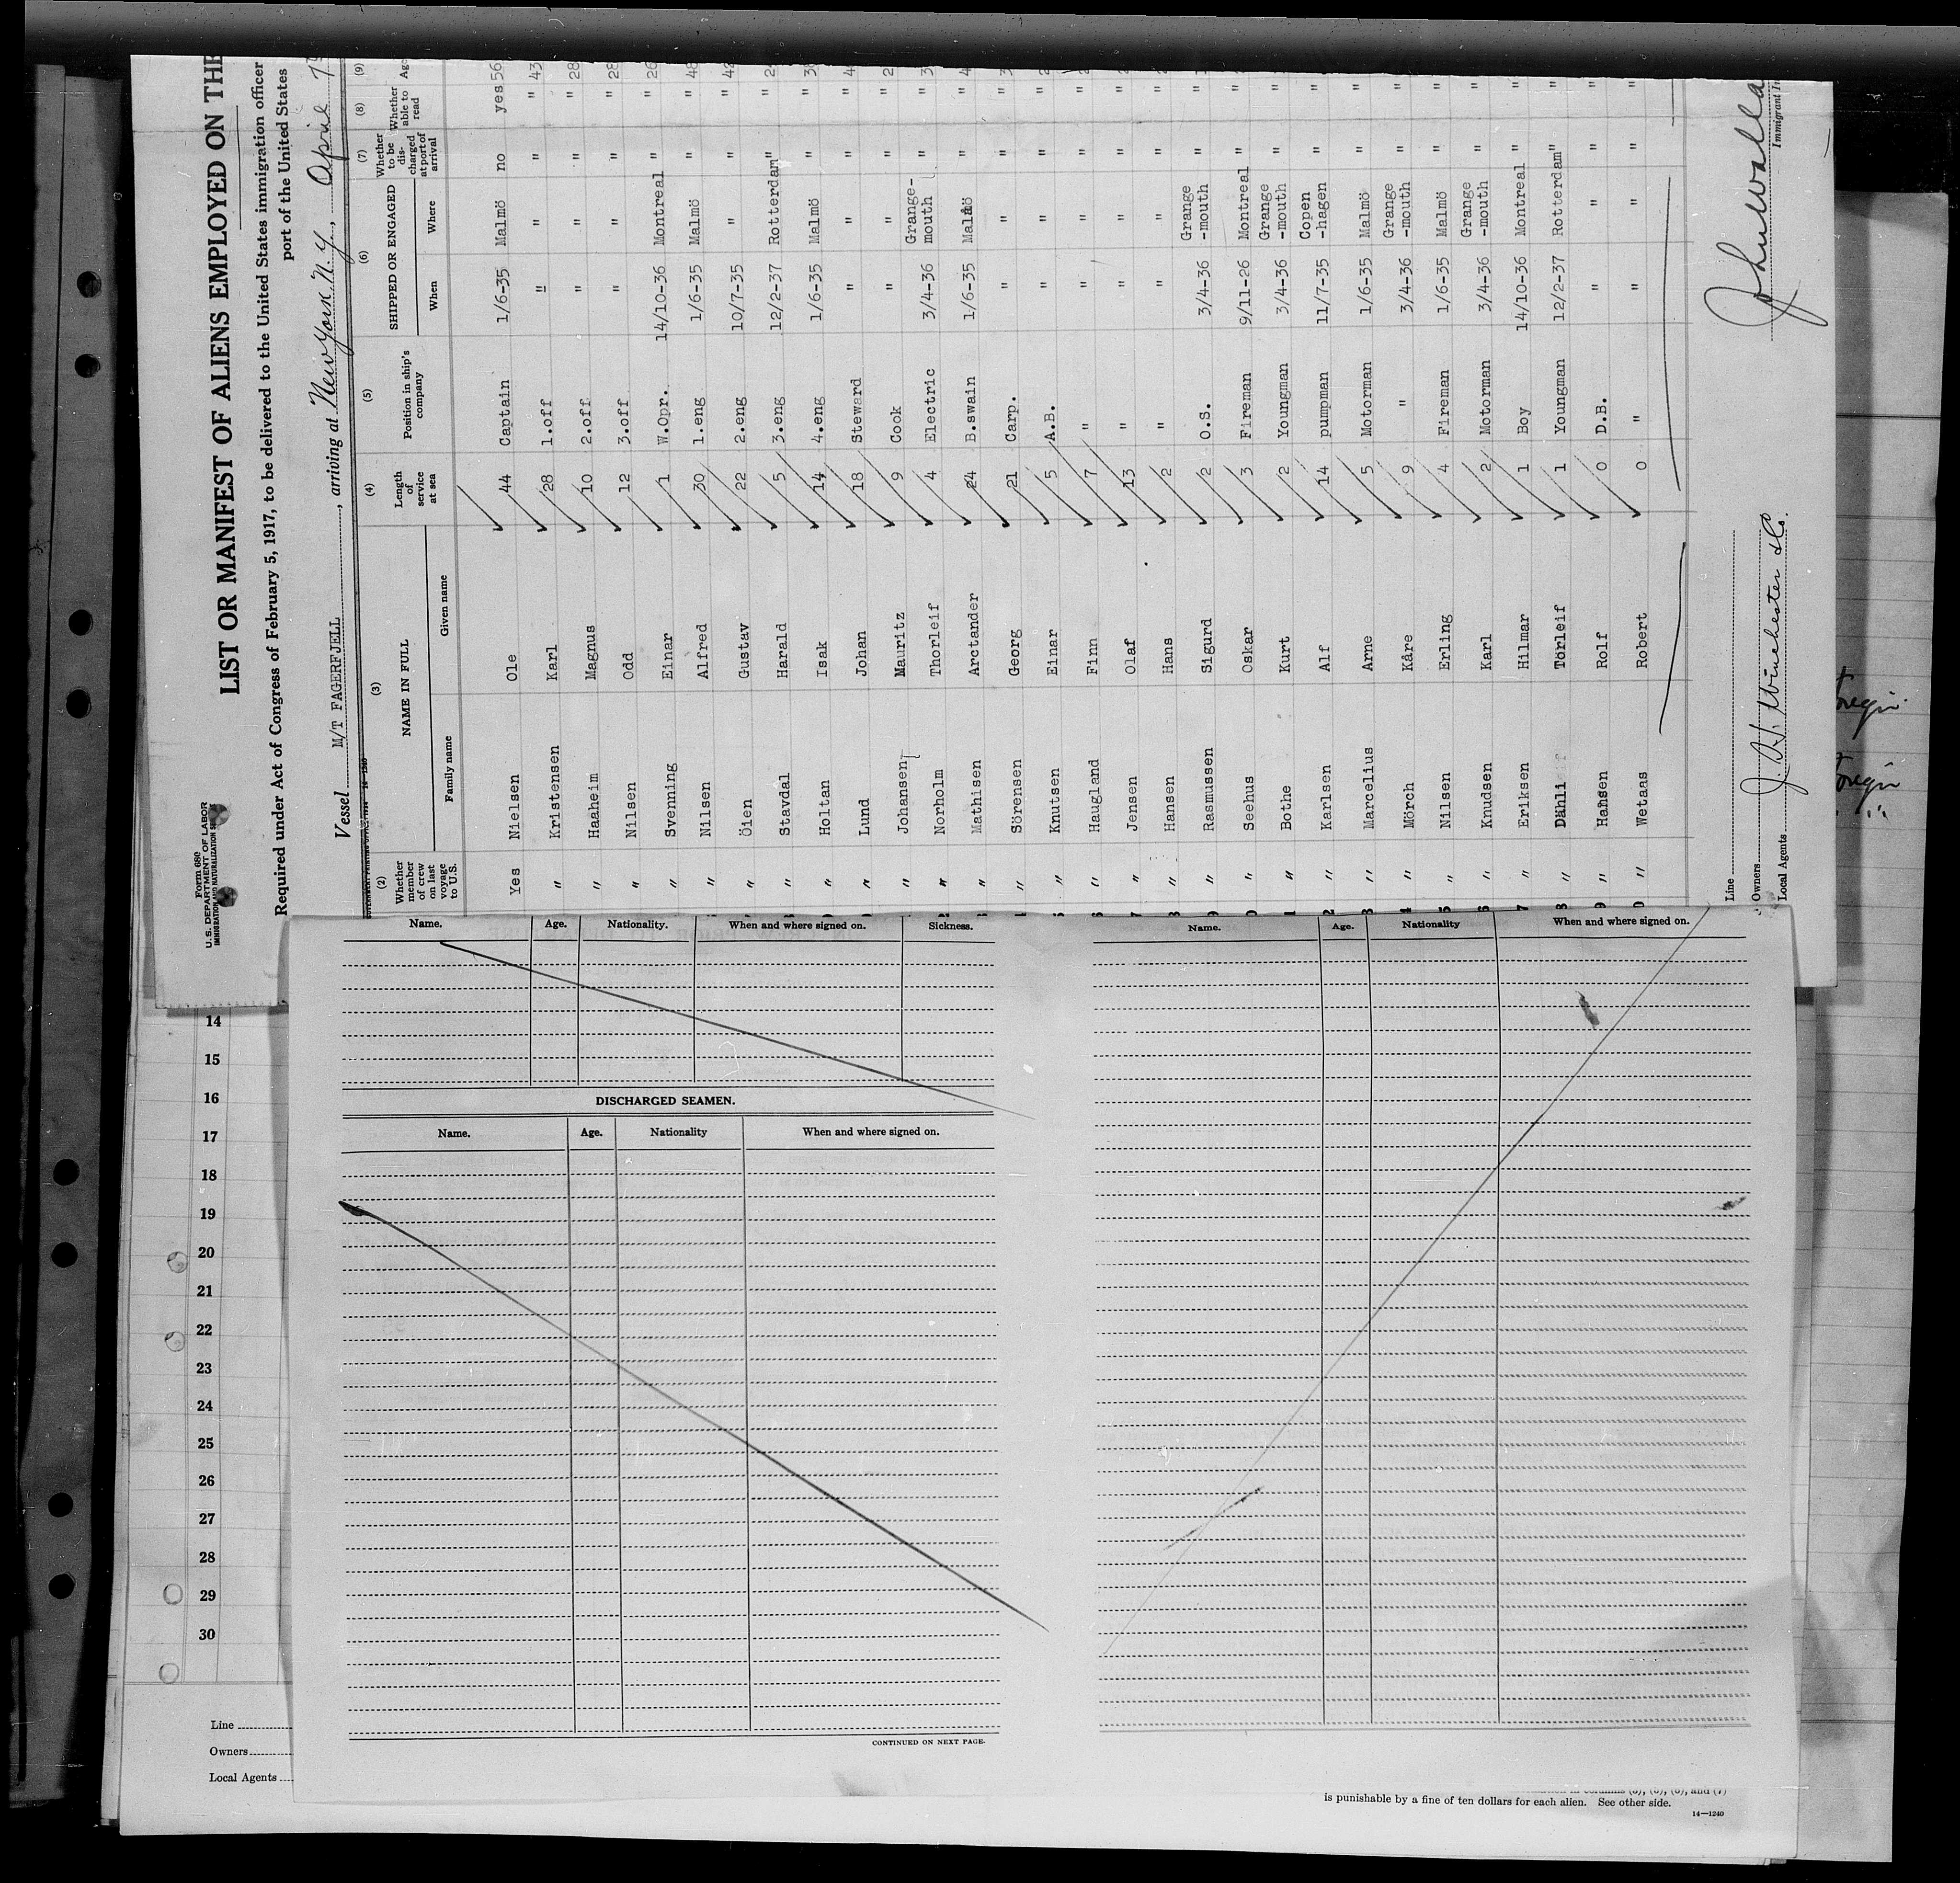 Form 680
U.S. DEPARTMENT OF LABOR
IMMIGRATION AND NATURALIZATION
LIST OR MANIFEST OF ALIENS EMPLOYED ON THE
Required under Act of Congress of February 5, 1917, to be delivered to the United States immigration officer
port of the United States
Vessel M/T FAGERFJELL, arriving at New York. N.Y., April
(2) (3) (4) (5) (6) (7) (8) (9)
Whether member of crew on last voyage to U.S. NAME IN FULL Length of service at sea Position in ship's company SHIPPED OR ENGAGED Whether to be discharged at port of arrival Whether able to read Age
Family name Given name When Where
Yes Nielsen Ole 44 Captain 1/6-35 Malmö no yes 56
" Kristensen Karl 28 1.off " " " " 43
" Haaheim Magnus 10 2.off " " " " 28
" Nilsen Odd 12 3.off " " " " 28
" Svenning Einar 1 W.Opr. 14/10-36 Montreal " " 26
" Nilsen Alfred 30 1.eng 1/6-35 Malmö " " 48
" Öien Gustav 22 2.eng 10/7-35 " " " 42
" Stavdal Harald 5 3.eng 12/2-37 Rotterdam " "
" Holtan Isak 14 4.eng 1/6-35 Malmö " "
" Lund Johan 18 Steward " " " "
" Johansen Mauritz 9 Cook " " " "
" Norholm Thorleif 4 Electric 3/4-36 Grange-mouth " "
" Mathisen Arctander 24 B.swain 1/6-35 Malmö " "
" Sörensen Georg 21 Carp. " " " "
" Knutsen Einar 5 A.B. " " " "
" Haugland Finn 7 " " " " "
" Jensen Olaf 13 " " " " "
" Hansen Hans 2 " " " " "
" Rasmussen Sigurd 2 O.S. 3/4-36 Grange-mouth " "
" Seehus Oskar 3 Fireman 9/11-26 Montreal " "
" Bothe Kurt 2 Youngman 3/4-36 Grange-mouth " "
" Karlsen Alf 14 pumpman 11/7-35 Copen-hagen " "
" Marcelius Arne 5 Motorman 1/6-35 Malmö " "
" Mörch Kåre 9 " 3/4-36 Grange-mouth " "
" Nilsen Erling 4 Fireman 1/6-35 Malmö " "
" Knudsen Karl 2 Motorman 3/4-36 Grange-mouth " "
" Eriksen Hilmar 1 Boy 14/10-36 Montreal " "
" Dähli Törleif 1 Youngman 12/2-37 Rotterdam " "
" Hansen Rolf 0 D.B. " " " "
" Wetaas Robert 0 " " " " "
Line
Owners
Local Agents J. H. Winchester & Co.
Immigrant
Name. Age. Nationality. When and where signed on. Sickness.
DISCHARGED SEAMEN.
Name. Age. Nationality When and where signed on.
CONTINUED ON NEXT PAGE.
Name. Age. Nationality When and where signed on.
14
15
16
17
18
19
20
21
22
23
24
25
26
27
28
29
30
Line
Owners
Local Agents
is punishable by a fine of ten dollars for each alien. See other side.
14—1240